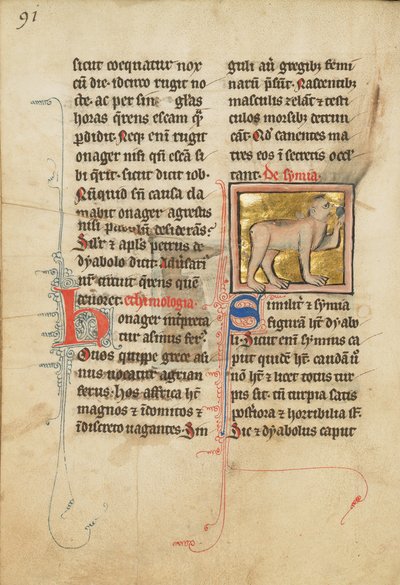 91
sicut coequatur nox
cū die. ideıro rugit no
cte. ac per singlas
horas q̄rens escam q̄
p̄didit. Neq; enī rugit
onager nisi qn̄ escā s̄
bi q̄rit. sicut dicit iob.
Nūnquid sn̄ causa cla
mabit onager agrestis
nisi pabulum desiderās.
Silr̄ & apl̄s petrus de
dyabolo dicit. Aduersari
circuit q̄rens quē
deuoret. ethimologia
Honager int̄preta
tur asinus fer᷒.
Onos quippe grece asi
nus uocatur agrian
ferus. hos affrica ht̄
magnos & īdomitos &
ī deserto uagantes. Sin
guli aū gregib; femi
narū p̄sūt. Nascentib;
masculis zelāt & testi
culos morsib; detrun
cāt. Qd̄ cauentes ma
tres eos ī secretis occul
tant. De symia.
Similit̄ & symia
figurā ht̄ dyabo
li. Sicut enī symius ca
put quidē ht̄ caudā ū
nō ht̄ & licet totus tur
pis sit. tn̄ turpia satis
post̄iora & horribilia st̄.
Sic & dyabolus caput